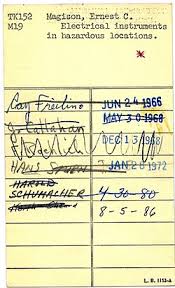 TK152 Magison, Ernest C.
M19 Electrical instruments
in hazardous locations.
Ray Freilino JUN 24 1966
J. Callahan MAY 30 1968
DEC 13 1968
HANS JAN 28 1972
HAROLD
SCHUMACHER 4-30-80
8-5-86
L. B. 1153-A